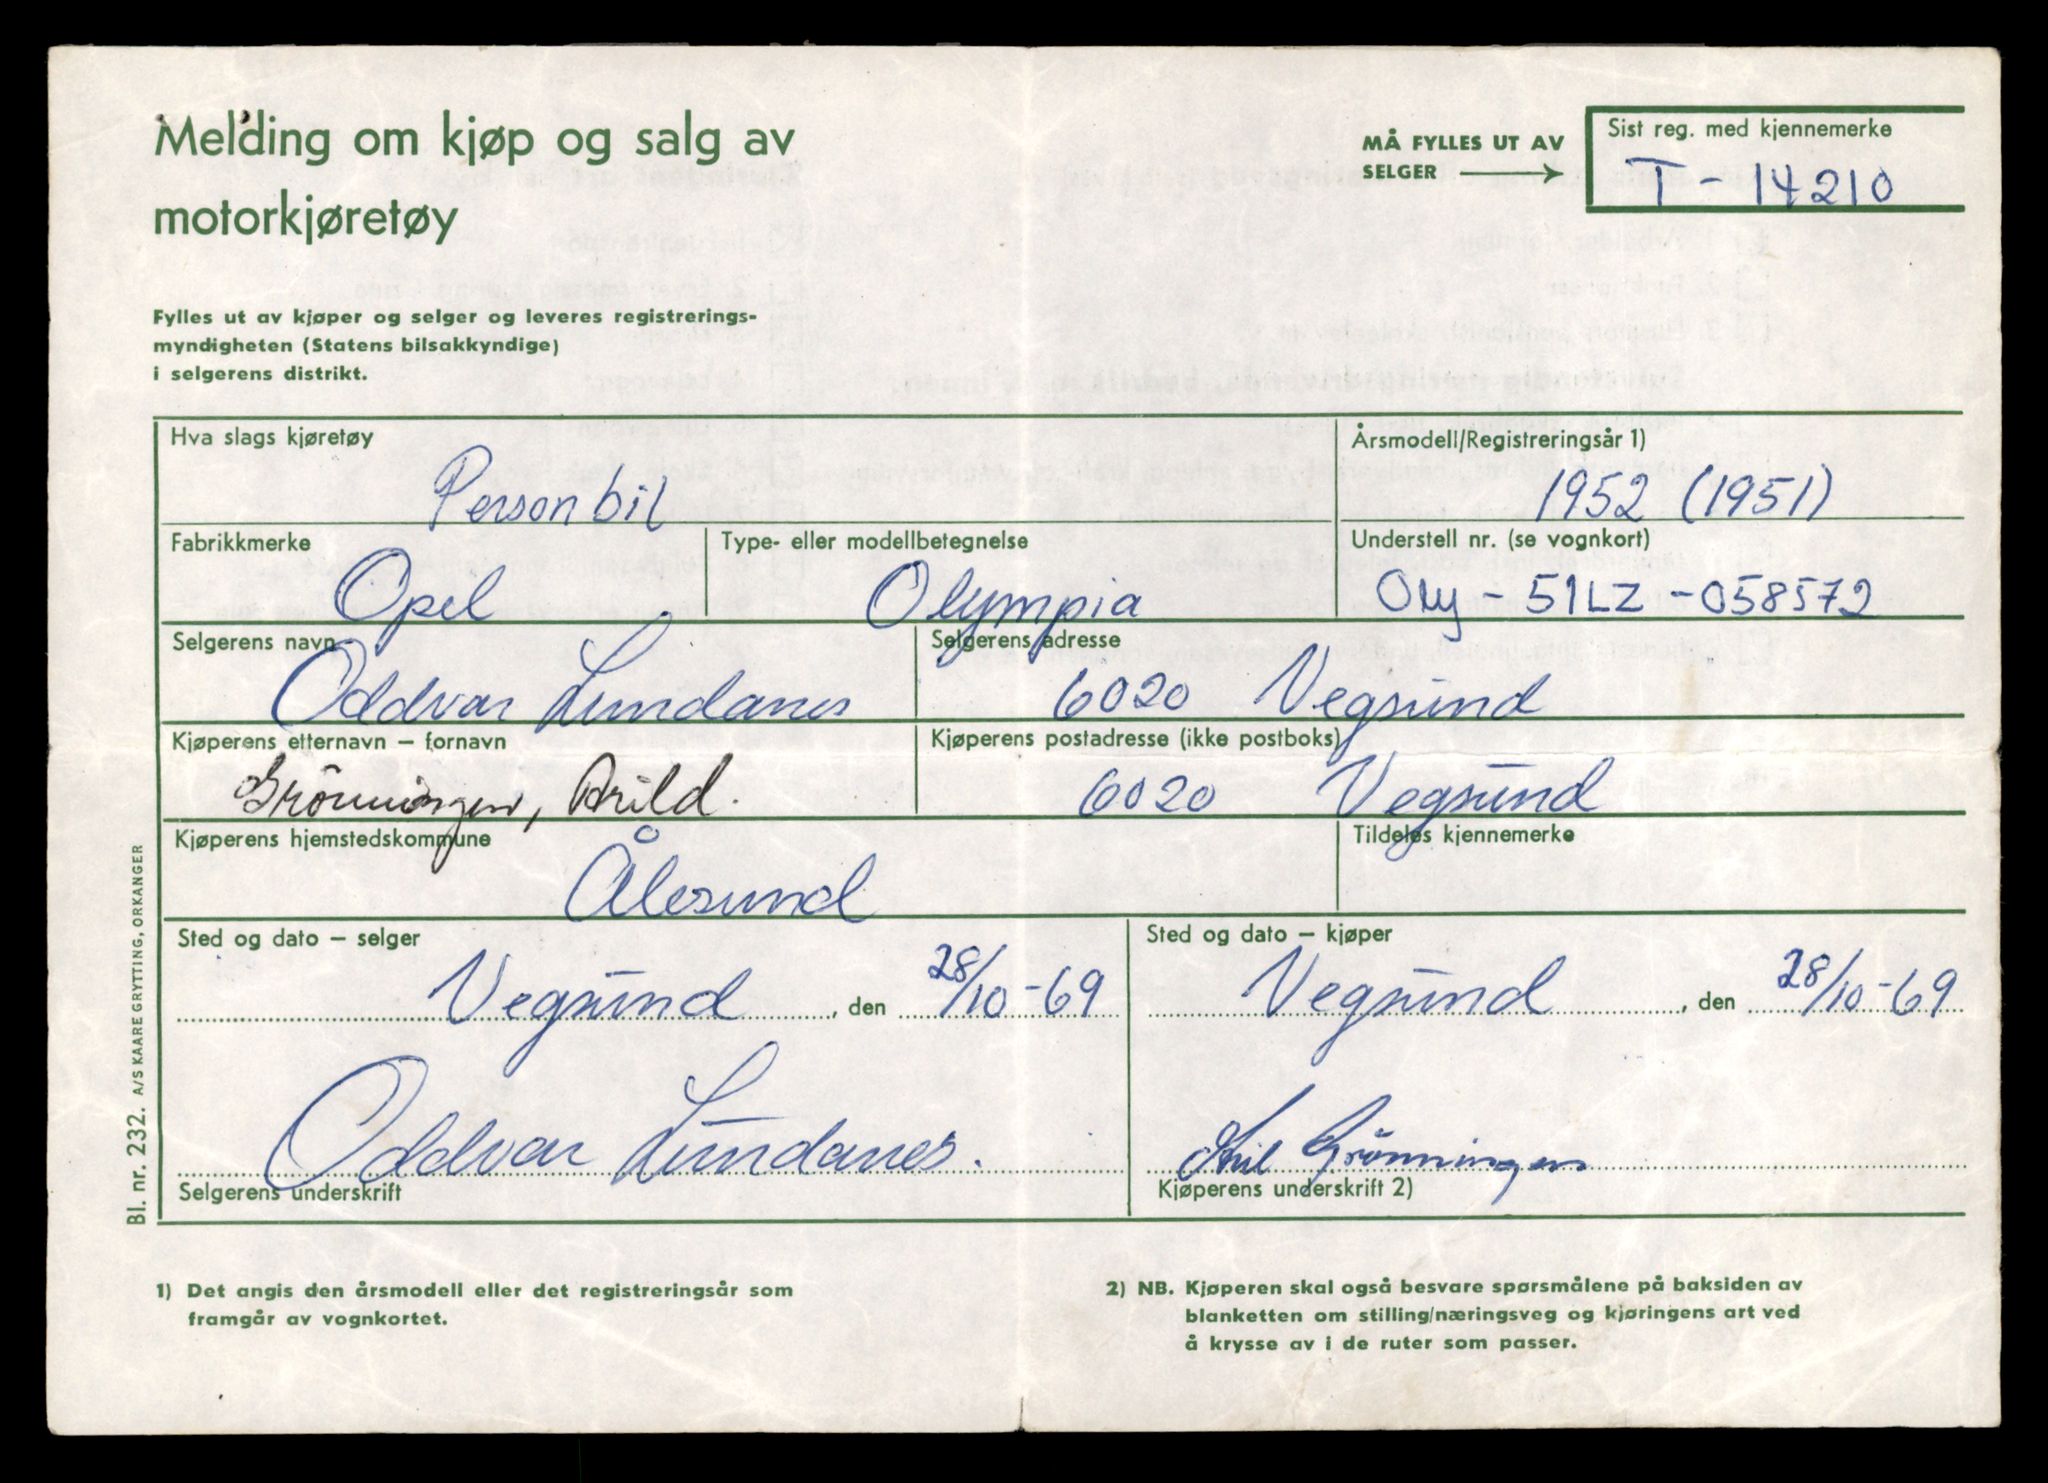 Melding om kjøp og salg av
motorkjøretøy
MÅ FYLLES UT AV
SELGER
Sist reg. med kjennemerke
T - 14210
Fylles ut av kjøper og selger og leveres registrerings-
myndigheten (Statens bilsakkyndige)
i selgerens distrikt.
Hva slags kjøretøy
Personbil
Årsmodell/Registreringsår 1)
1952 (1951)
Fabrikkmerke
Opel
Type- eller modellbetegnelse
Olympia
Understell nr. (se vognkort)
Oly - 51LZ - 058572
Selgerens navn
Oddvar Lundanes
Selgerens adresse
6020 Vegsund
Kjøperens etternavn – fornavn
Grönningen, Arild.
Kjøperens postadresse (ikke postboks)
6020 Vegsund
Kjøperens hjemstedskommune
Ålesund
Tildeles kjennemerke
Sted og dato – selger
Vegsund, den 28/10-69
Sted og dato – kjøper
Vegsund, den 28/10-69
Oddvar Lundanes.
Selgerens underskrift
Grönningen
Kjøperens underskrift 2)
Bl. nr. 232. A/S KAARE GRYTTING, ORKANGER
1) Det angis den årsmodell eller det registreringsår som
framgår av vognkortet.
2) NB. Kjøperen skal også besvare spørsmålene på baksiden av
blanketten om stilling/næringsveg og kjøringens art ved
å krysse av i de ruter som passer.